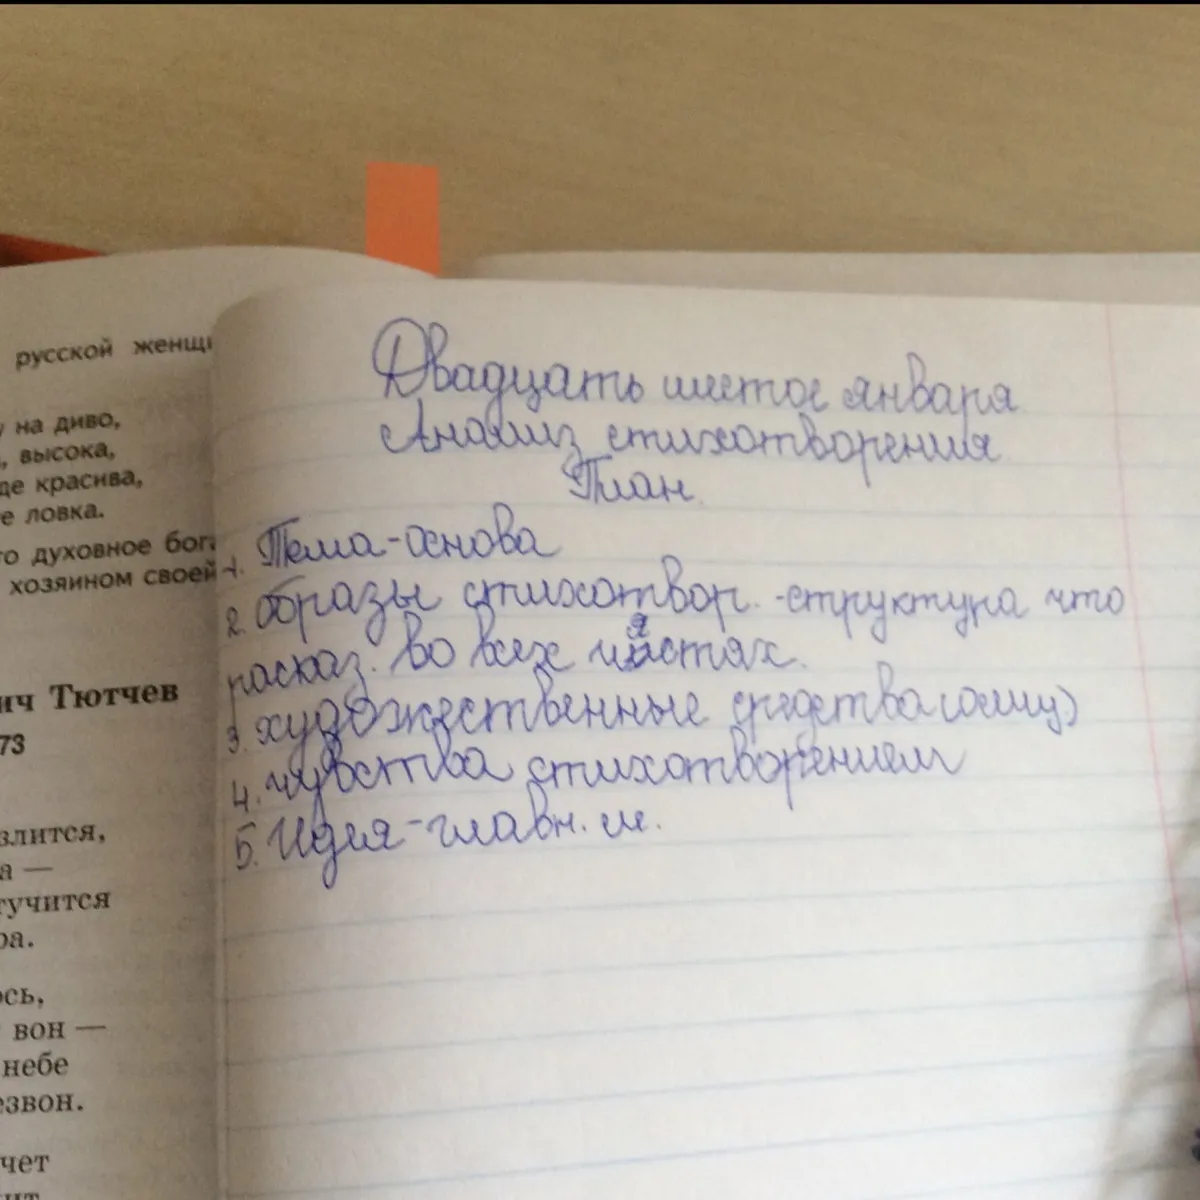 русской женщи
у на диво,
, высока,
де красива,
е ловка.
го духовное бога
хозяином своей
ич Тютчев
73
злится,
а —
тучится
ра.
ось,
вон —
небе
езвон.
чет
Двадцать шестое января
Анализ стихотворения
План
1. Тема-основа
2. образы стихотвор. -структура что
расказ. во всех чястях.
3. художественные средства
4. чувства стихотворением
5. Идея-главн. м.